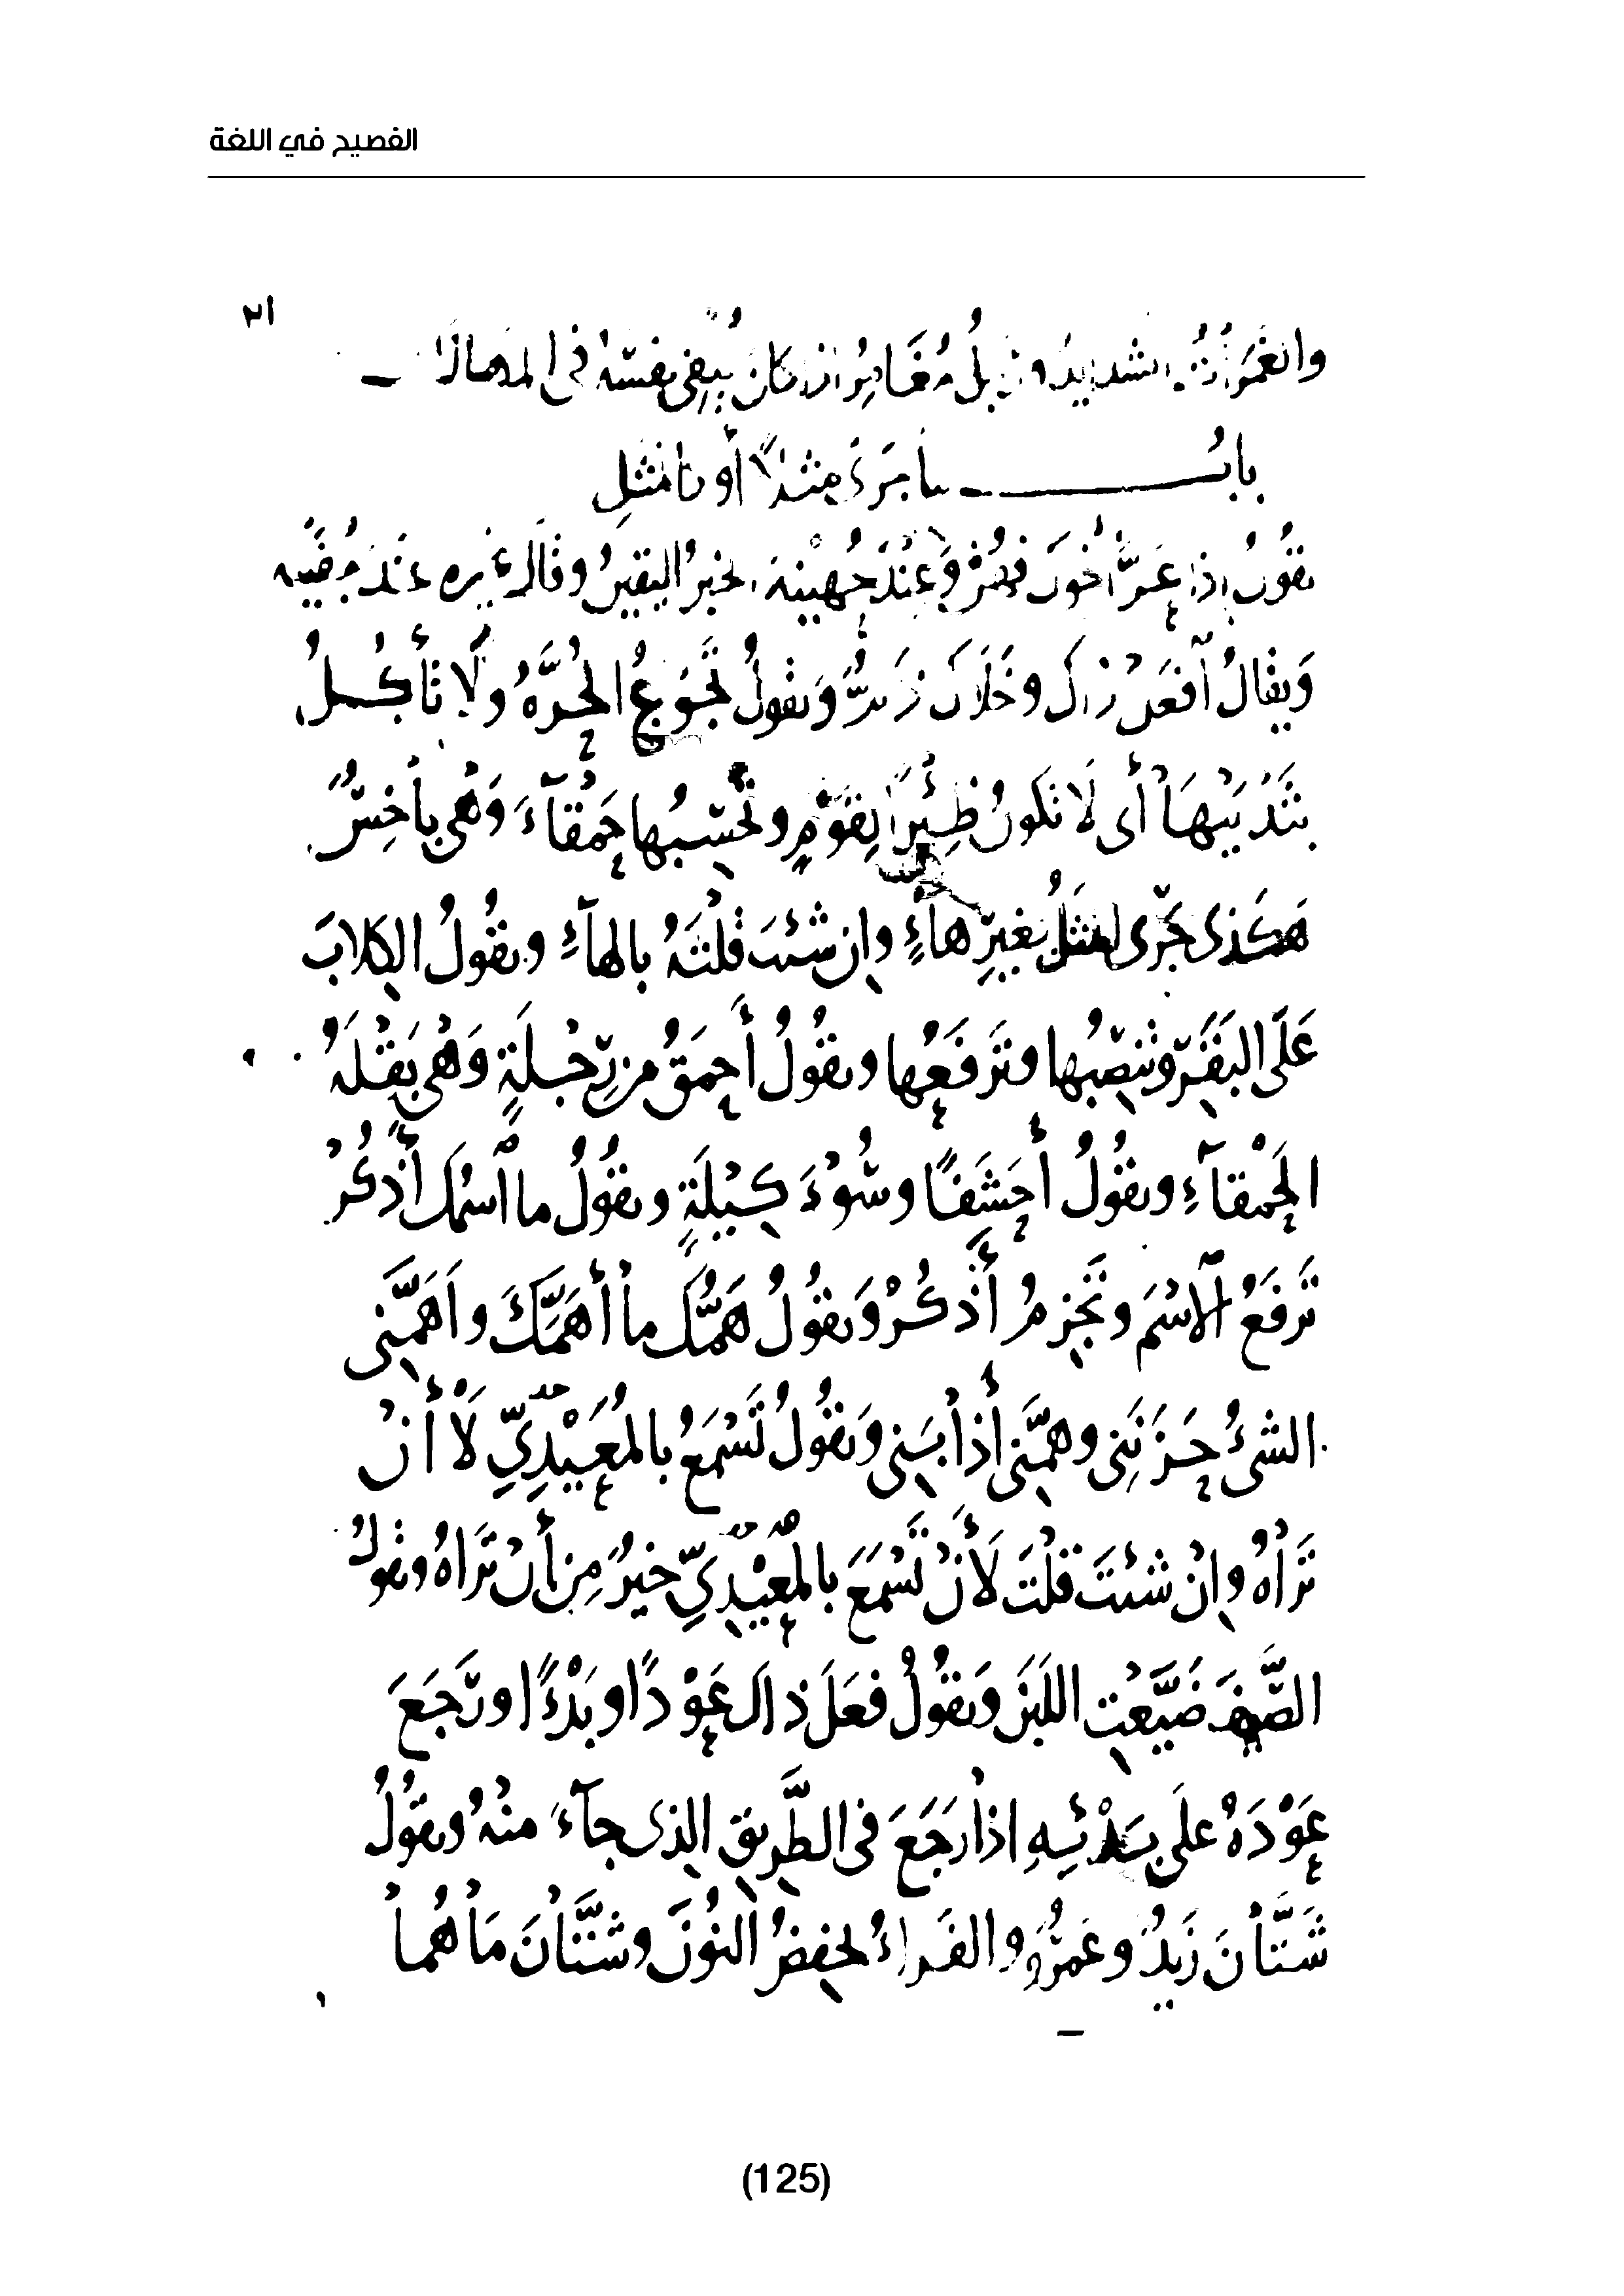 الفصيح في اللغة
٢١
والغَمَراتُ الشدايدُ ورجلُ مُغَامِرُ اذا كان يُلقى بنفسه في المهالك
بابُ ما جَرَى مثلاً أو كالمثلِ
تقُولُ اذا عَزَّ أخُوكَ فهُنْ وَعِنْدَ جُهَيْنَة الخبرُ اليقينُ وقال غيره
وَيقالُ آفعَلْ ذاك وخَلاكَ ذَمٌّ وَتقولُ تجُوعُ الحُرَّةُ ولا تأكُلُ
بثَدْيَيْهَا أى لا تكونُ ظِئْرًا لِقَوْمٍ وتَحْسِبُها حَمْقآءَ وَهْى باخِسٌ
هَكذى جَرَى المثَلُ بغيرِ هآءٍ وان شئتَ قُلْتَهُ بالهآءِ وتقُولُ الكِلابَ
عَلَى البَقَرِ وتنصِبُها وتَرْفَعُها وتقُولُ أحمَقُ مِن رِجْلَةٍ وَهْى بَقْلَةُ
الحَمْقآءِ وتقُولُ أحَشَفًا وسُوْءَ كِيْلَةٍ وتقُولُ ما آسْمُك أَذْكُرْ
تَرفَعُ آلاسْمَ وتَجْزِمُ أَذْكُرْ وَتقُولُ هَمُّك ما أَهَمَّكَ واَهَمَّنِى
الشئُ حَزَنَنِى وهمَّنِى أذابَنِى وَتقُولُ تَسْمَعُ بالمُعَيْدِيِّ لَا أَنْ
تَرَاهُ وانْ شئتَ قلْتَ لَأَنْ تَسْمَعَ بالمُعَيْدِيِّ خيرٌ مِن أَنْ تَرَاهُ وتقولُ
الصَّيْفَ ضَيَّعْتِ اللَبَنَ وَتقُولُ فعَلَ ذاك عَوْدًا وبَدْءًا ورَجَعَ
عَوْدَهُ علَى بَدْئِهِ اذا رَجَعَ فى الطَّرِيقِ الذى جآءَ منْهُ وتقُولُ
شَتَّانَ زَيْدُ وعَمْرٌو والفَراءُ يخفِضُ النُوْنَ وشَتَّانَ مَا هُما
(125)